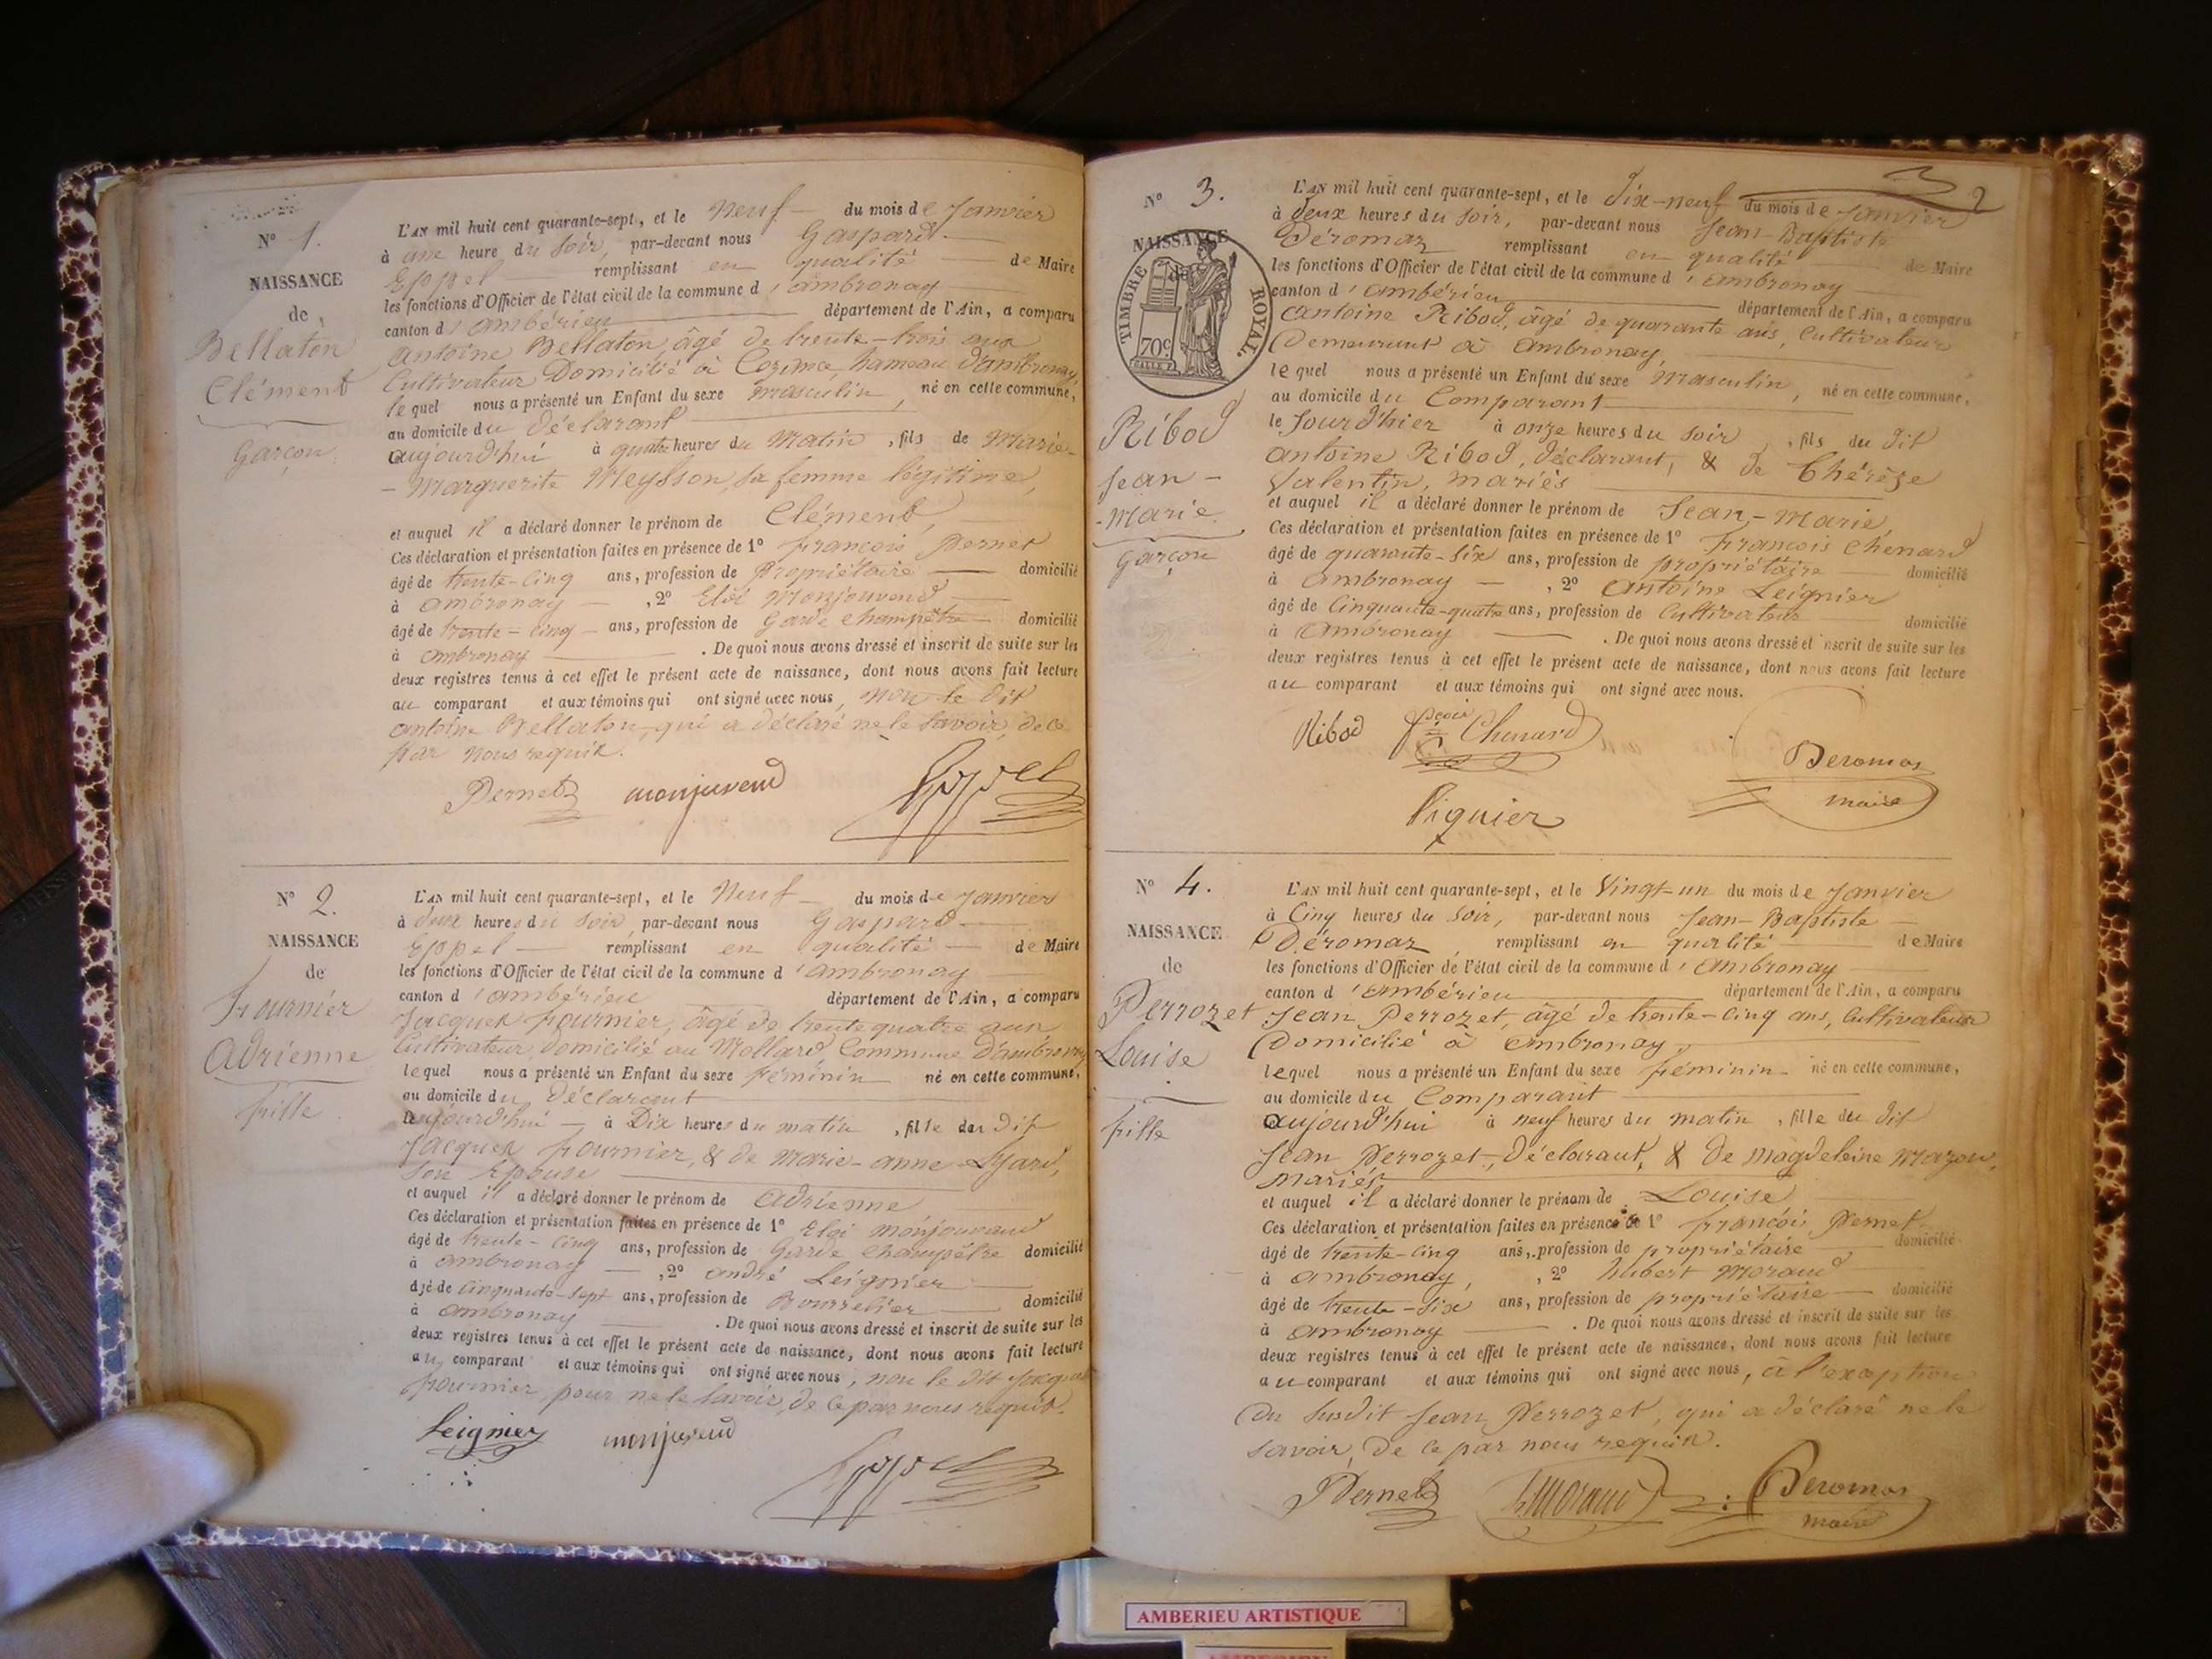 N° 1.
NAISSANCE
de
Bellaton
Clément
Garçon
L'AN mil huit cent quarante-sept, et le Neuf du mois de Janvier
à une heure du Soir, par-devant nous Gaspard
Eppel remplissant en qualité de Maire
les fonctions d'Officier de l'état civil de la commune d'ambronay
canton d'ambérieu département de l'Ain, a comparu
antoine Bellaton, âgé de trente-trois ans
Cultivateur Domicilié à Cozance, hameau d'ambronay,
lequel nous a présenté un Enfant du sexe masculin, né en cette commune,
au domicile du déclarant
aujourd'hui à quatre heures du Matin, fils de Marie-
-Marguerite Meysson, sa femme légitime,
et auquel il a déclaré donner le prénom de Clément,
Ces déclaration et présentation faites en présence de 1° françois Pernet
âgé de trente-cinq ans, profession de Propriétaire domicilié
à ambronay, 2° Eloi Monjouvend
âgé de trente-cinq ans, profession de Garde champêtre domicilié
à ambronay. De quoi nous avons dressé et inscrit de suite sur les
deux registres tenus à cet effet le présent acte de naissance, dont nous avons fait lecture
au comparant et aux témoins qui ont signé avec nous, non le dit
antoine Bellaton, qui a déclaré ne le savoir, de ce
par nous requis.
Pernet monjuvend Eppel
N° 2.
NAISSANCE
de
fournier
Adrienne
fille
L'AN mil huit cent quarante-sept, et le Neuf du mois de Janvier
à deux heures du Soir, par-devant nous Gaspard
Eppel remplissant en qualité de Maire
les fonctions d'Officier de l'état civil de la commune d'ambronay
canton d'ambérieu département de l'Ain, a comparu
Jacques fournier, âgé de trente quatre ans
Cultivateur, domicilié au Mollard Commune d'ambronay
lequel nous a présenté un Enfant du sexe féminin né en cette commune,
au domicile du déclarant
aujourd'hui à Dix heures du matin, fille du dit
Jacques fournier, & de Marie-anne
son épouse
et auquel il a déclaré donner le prénom de Adrienne
Ces déclaration et présentation faites en présence de 1° Eloi monjouvand
âgé de trente-cinq ans, profession de Garde champêtre domicilié
à ambronay, 2° andré Leignier
âgé de cinquante-sept ans, profession de Bourrelier domicilié
à ambronay. De quoi nous avons dressé et inscrit de suite sur les
deux registres tenus à cet effet le présent acte de naissance, dont nous avons fait lecture
au comparant et aux témoins qui ont signé avec nous, non le dit Jacques
fournier, pour ne le savoir, de ce par nous requis.
Leignier monjuvend Eppel
2
N° 3.
NAISSANCE
de
TIMBRE ROYAL.
70c
Ribod
Jean-
-Marie
Garçon
L'AN mil huit cent quarante-sept, et le Dix-neuf du mois de Janvier
à Deux heures du Soir, par-devant nous Jean-Baptiste
Déromaz remplissant en qualité de Maire
les fonctions d'Officier de l'état civil de la commune d'ambronay
canton d'ambérieu département de l'Ain, a comparu
antoine Ribod, âgé de quarante ans, Cultivateur
Demeurant à ambronay,
lequel nous a présenté un Enfant du sexe Masculin, né en cette commune,
au domicile du Comparant
le Jourd'hier à onze heures du soir, fils du dit
antoine Ribod, déclarant, & de Thérèze
Valentin, mariés
et auquel il a déclaré donner le prénom de Jean-Marie,
Ces déclaration et présentation faites en présence de 1° François Chenard
âgé de quarante-six ans, profession de propriétaire domicilié
à ambronay, 2° antoine Leignier
âgé de Cinquante-quatre ans, profession de Cultivateur domicilié
à ambronay. De quoi nous avons dressé et inscrit de suite sur les
deux registres tenus à cet effet le présent acte de naissance, dont nous avons fait lecture
au comparant et aux témoins qui ont signé avec nous.
Ribod Chenard
Deromas
maire
Piquier
N° 4.
NAISSANCE
de
Perrozet
Louise
fille
L'AN mil huit cent quarante-sept, et le Vingt-un du mois de Janvier
à Cinq heures du Soir, par-devant nous Jean-Baptiste
Déromaz remplissant en qualité de Maire
les fonctions d'Officier de l'état civil de la commune d'ambronay
canton d'ambérieu département de l'Ain, a comparu
Jean Perrozet, âgé de trente-cinq ans, Cultivateur
Domicilié à ambronay,
lequel nous a présenté un Enfant du sexe féminin né en cette commune,
au domicile du Comparant
aujourd'hui à neuf heures du matin, fille du dit
Jean Perrozet, déclarant, & de Magdeleine Mazou,
mariés
et auquel il a déclaré donner le prénom de Louise
Ces déclaration et présentation faites en présence de 1° françois Pernet
âgé de trente-cinq ans, profession de propriétaire domicilié
à ambronay, 2° hubert Morand
âgé de trente-six ans, profession de propriétaire domicilié
à ambronay. De quoi nous avons dressé et inscrit de suite sur les
deux registres tenus à cet effet le présent acte de naissance, dont nous avons fait lecture
au comparant et aux témoins qui ont signé avec nous, à l'exception
du susdit Jean Perrozet, qui a déclaré ne le
savoir, de ce par nous requis.
Pernet h Morand Deromas
maire
AMBERIEU ARTISTIQUE